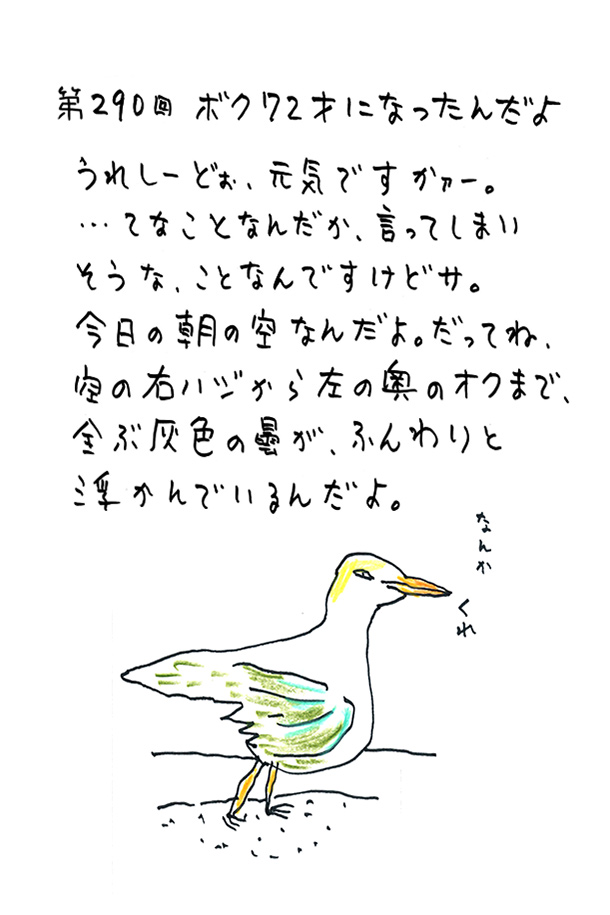 第290回 ボク72才になったんだよ
うれしーどぉ、元気ですかァー。
…てなことなんだか、言ってしまい
そうな、ことなんですけどサ。
今日の朝の空なんだよ。だってね、
空の右ハジから左の奥のオクまで、
全ぶ灰色の曇が、ふんわりと
浮かんでいるんだよ。
なんか
くれ